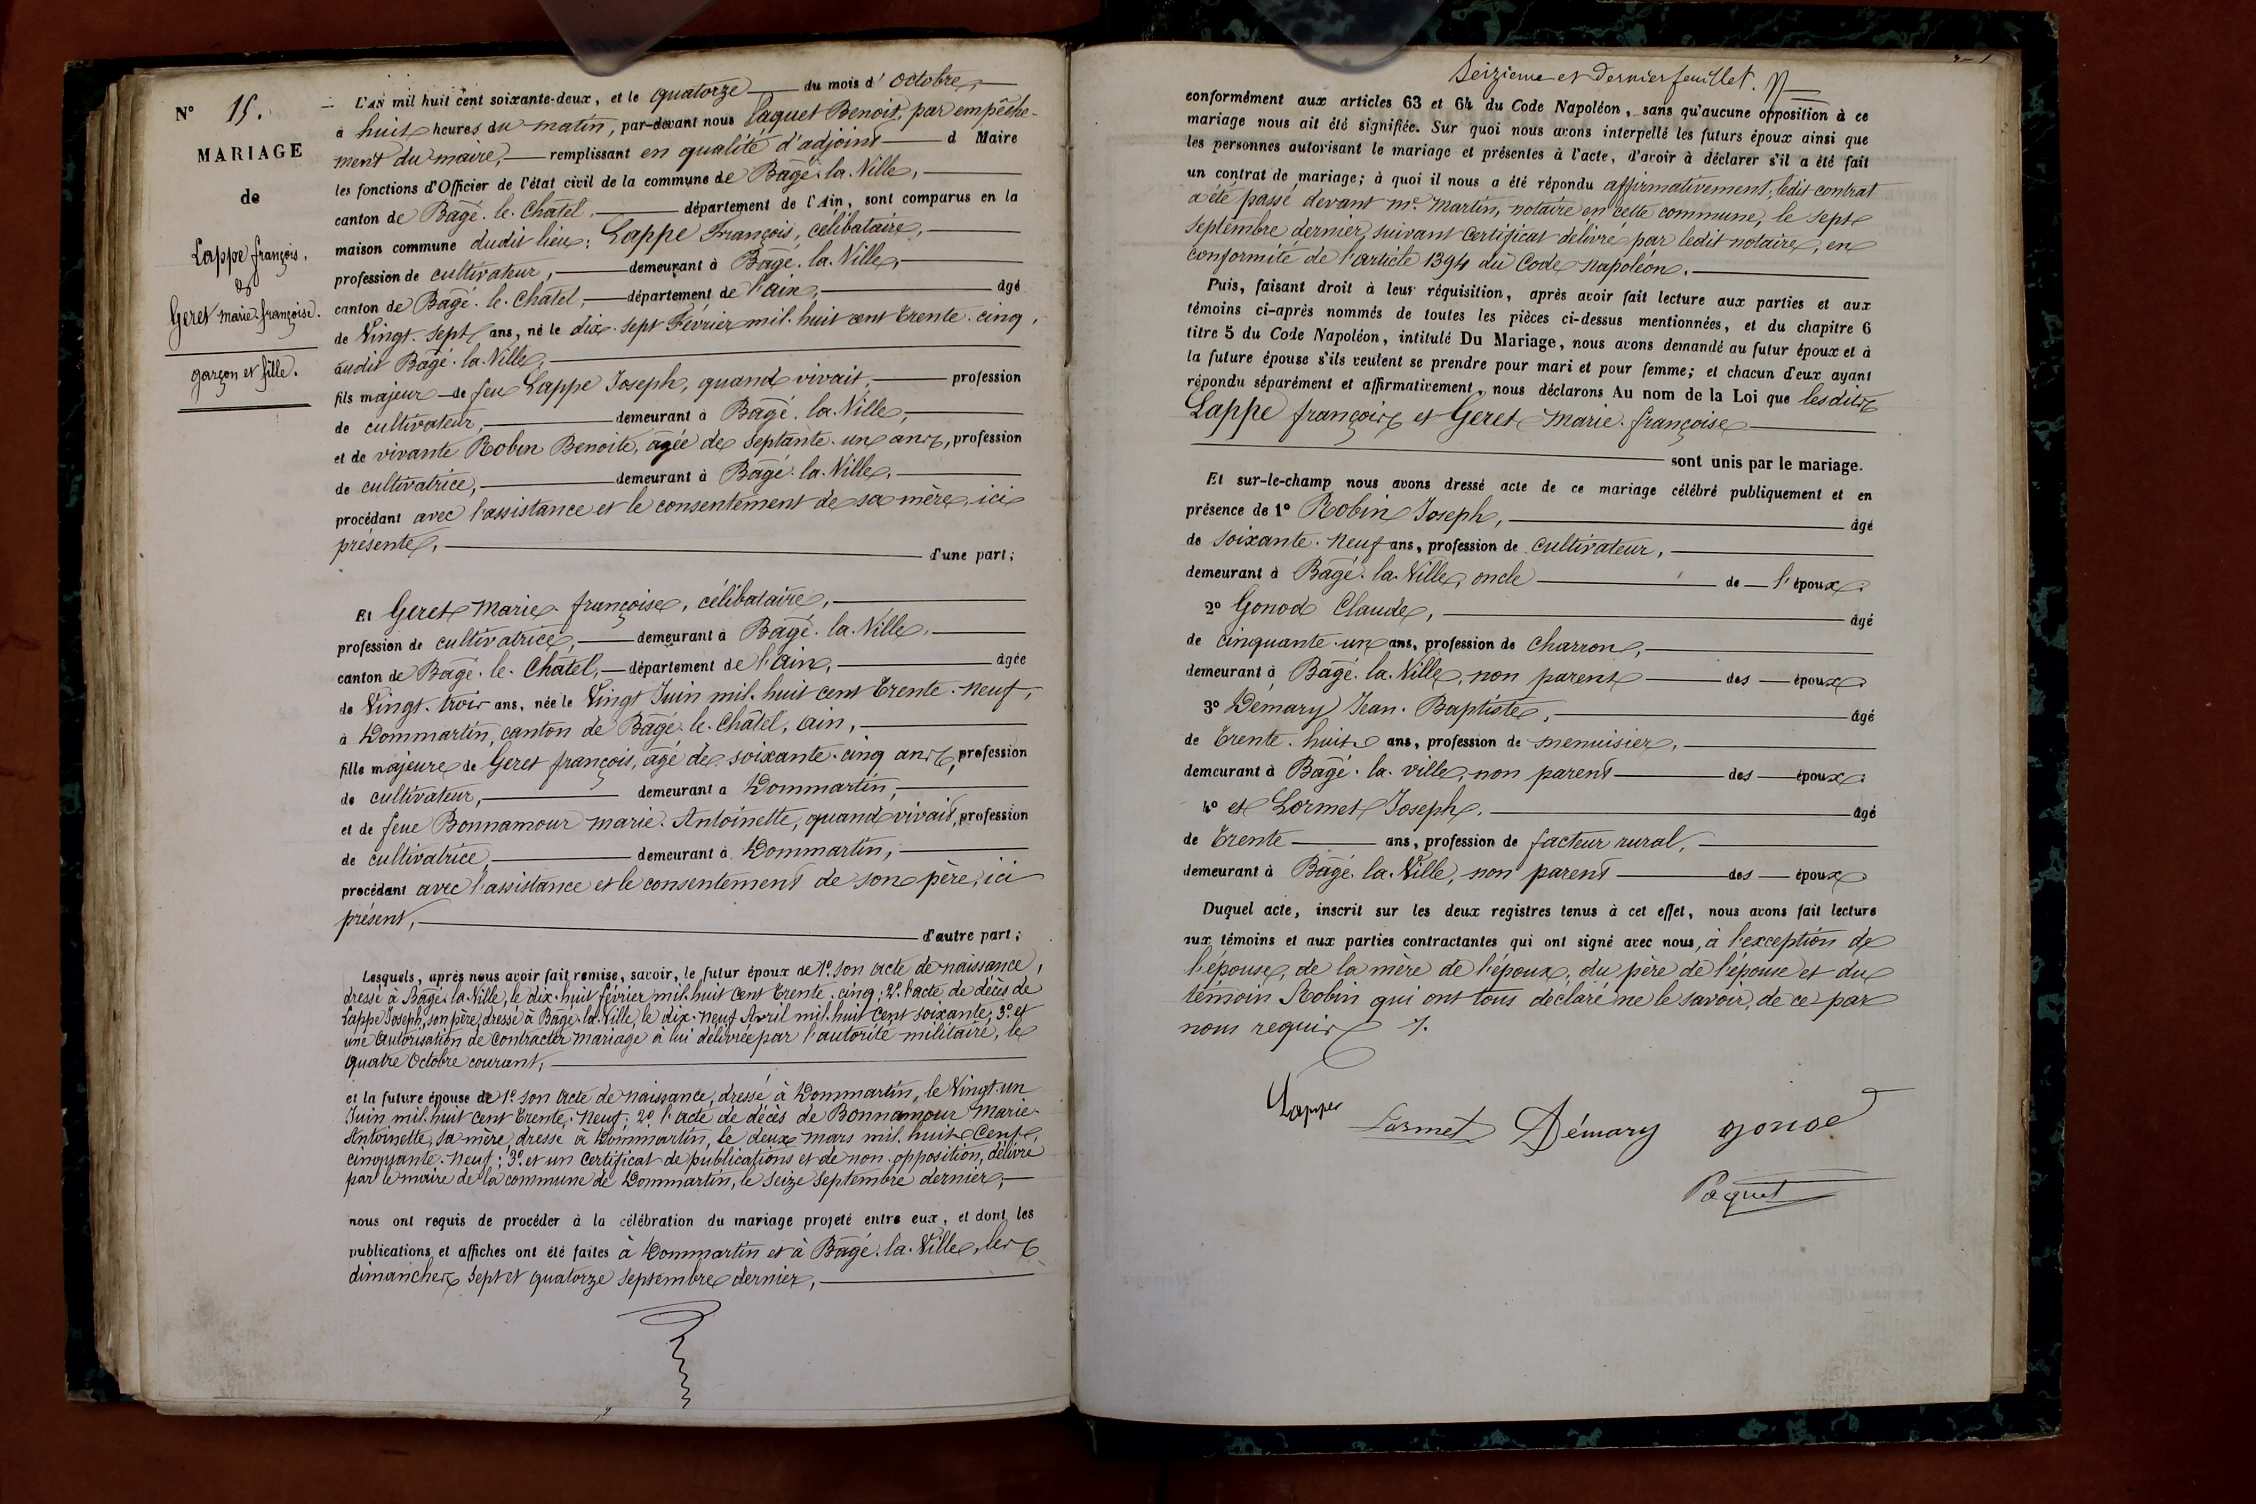 N° 15.
MARIAGE
de
Lappe françois,
&
Geret marie-françoise.
garçon et fille.
L'AN mil huit cent soixante-deux, et le quatorze du mois d'octobre,
à huit heures du matin, par-devant nous Paquet Benoit, par empêche-
ment du maire, remplissant en qualité d'adjoint d Maire
les fonctions d'Officier de l'état civil de la commune de Bâgé-la-Ville,
canton de Bâgé-le-Châtel, département de l'Ain, sont comparus en la
maison commune dudit lieu: Lappe François, célibataire,
profession de cultivateur, demeurant à Bâgé-la-Ville,
canton de Bâgé-le-Châtel, département de l'ain, âgé
de Vingt-sept ans, né le dix-sept Février mil-huit cent trente-cinq,
audit Bâgé-la-Ville,
fils majeur de feu Lappe Joseph, quand vivait, profession
de cultivateur, demeurant à Bâgé-la-Ville,
et de vivante Robin Benoite, agée de septante-un ans, profession
de cultivatrice, demeurant à Bâgé-la-Ville,
procédant avec l'assistance et le consentement de sa mère, ici
présente, d'une part;
Et Geret Marie-françoise, célibataire,
profession de cultivatrice, demeurant à Bâgé-la-Ville,
canton de Bâgé-le-Châtel, département de l'Ain, âgée
de Vingt-trois ans, née le Vingt Juin mil-huit cent trente-neuf,
à Dommartin, canton de Bâgé-le-Châtel, ain,
fille majeure de Geret françois, âgé de soixante-cinq ans, profession
de cultivateur, demeurant a Dommartin,
et de feue Bonnamour marie-Antoinette, quand vivait, profession
de cultivatrice, demeurant à Dommartin,
procédant avec l'assistance et le consentement de son père, ici
présent, d'autre part;
Lesquels, après nous avoir fait remise, savoir, le futur époux de 1° son acte de naissance,
dressé à Bâgé-la-Ville, le dix-huit février mil-huit cent trente-cinq; 2° l'acte de décès de
Lappe Joseph, son père, dressé à Bâgé-la-Ville, le dix-neuf Avril mil-huit cent soixante; 3° et
une autorisation de contracter mariage à lui délivrée par l'autorité militaire, le
quatre Octobre courant,
et la future épouse de 1° son acte de naissance, dressé à Dommartin, le Vingt-un
Juin mil-huit cent trente-neuf; 2° l'acte de décès de Bonnamour Marie-
Antoinette, sa mère, dressé à Dommartin, le deux mars mil-huit-cent-
cinquante-neuf; 3° et un certificat de publications et de non-opposition, délivré
par le maire de la commune de Dommartin, le seize septembre dernier,
nous ont requis de procéder à la célébration du mariage projeté entre eux, et dont les
publications et affiches ont été faites à Dommartin et à Bâgé-la-Ville, les
dimanches sept et quatorze septembre dernier,
Seizieme et dernier feuillet.
conformément aux articles 63 et 64 du Code Napoléon, sans qu'aucune opposition à ce
mariage nous ait été signifiée. Sur quoi nous avons interpellé les futurs époux ainsi que
les personnes autorisant le mariage et présentes à l'acte, d'avoir à déclarer s'il a été fait
un contrat de mariage; à quoi il nous a été répondu affirmativement, ledit contrat
a été passé devant me. Martin, notaire en cette commune, le sept
septembre dernier, suivant certificat délivré par ledit notaire, en
conformité de l'article 1394 du Code napoléon.
Puis, faisant droit à leur réquisition, après avoir fait lecture aux parties et aux
témoins ci-après nommés de toutes les pièces ci-dessus mentionnées, et du chapitre 6
titre 5 du Code Napoléon, intitulé Du Mariage, nous avons demandé au futur époux et à
la future épouse s'ils veulent se prendre pour mari et pour femme; et chacun d'eux ayant
répondu séparément et affirmativement, nous déclarons Au nom de la Loi que lesdits
Lappe françois et Geret Marie-françoise
sont unis par le mariage.
Et sur-le-champ nous avons dressé acte de ce mariage célébré publiquement et en
présence de 1° Robin Joseph, âgé
de soixante-neuf ans, profession de cultivateur,
demeurant à Bâgé-la-Ville, oncle de l'époux.
2° Gonod Claude, âgé
de cinquante-un ans, profession de charron,
demeurant à Bâgé-la-Ville, non parent des époux.
3° Démary Jean-Baptiste, âgé
de trente-huit ans, profession de menuisier,
demeurant à Bâgé-la-ville, non parent des époux.
4° et Lormet Joseph, âgé
de trente ans, profession de facteur rural,
demeurant à Bâgé-la-Ville, non parent des époux.
Duquel acte, inscrit sur les deux registres tenus à cet effet, nous avons fait lecture
aux témoins et aux parties contractantes qui ont signé avec nous, à l'exception de
l'épouse, de la mère de l'époux, du père de l'épouse et du
témoin Robin qui ont tous déclaré ne le savoir, de ce par
nous requis
Lappe
Lormet Démary gonod
Paquet